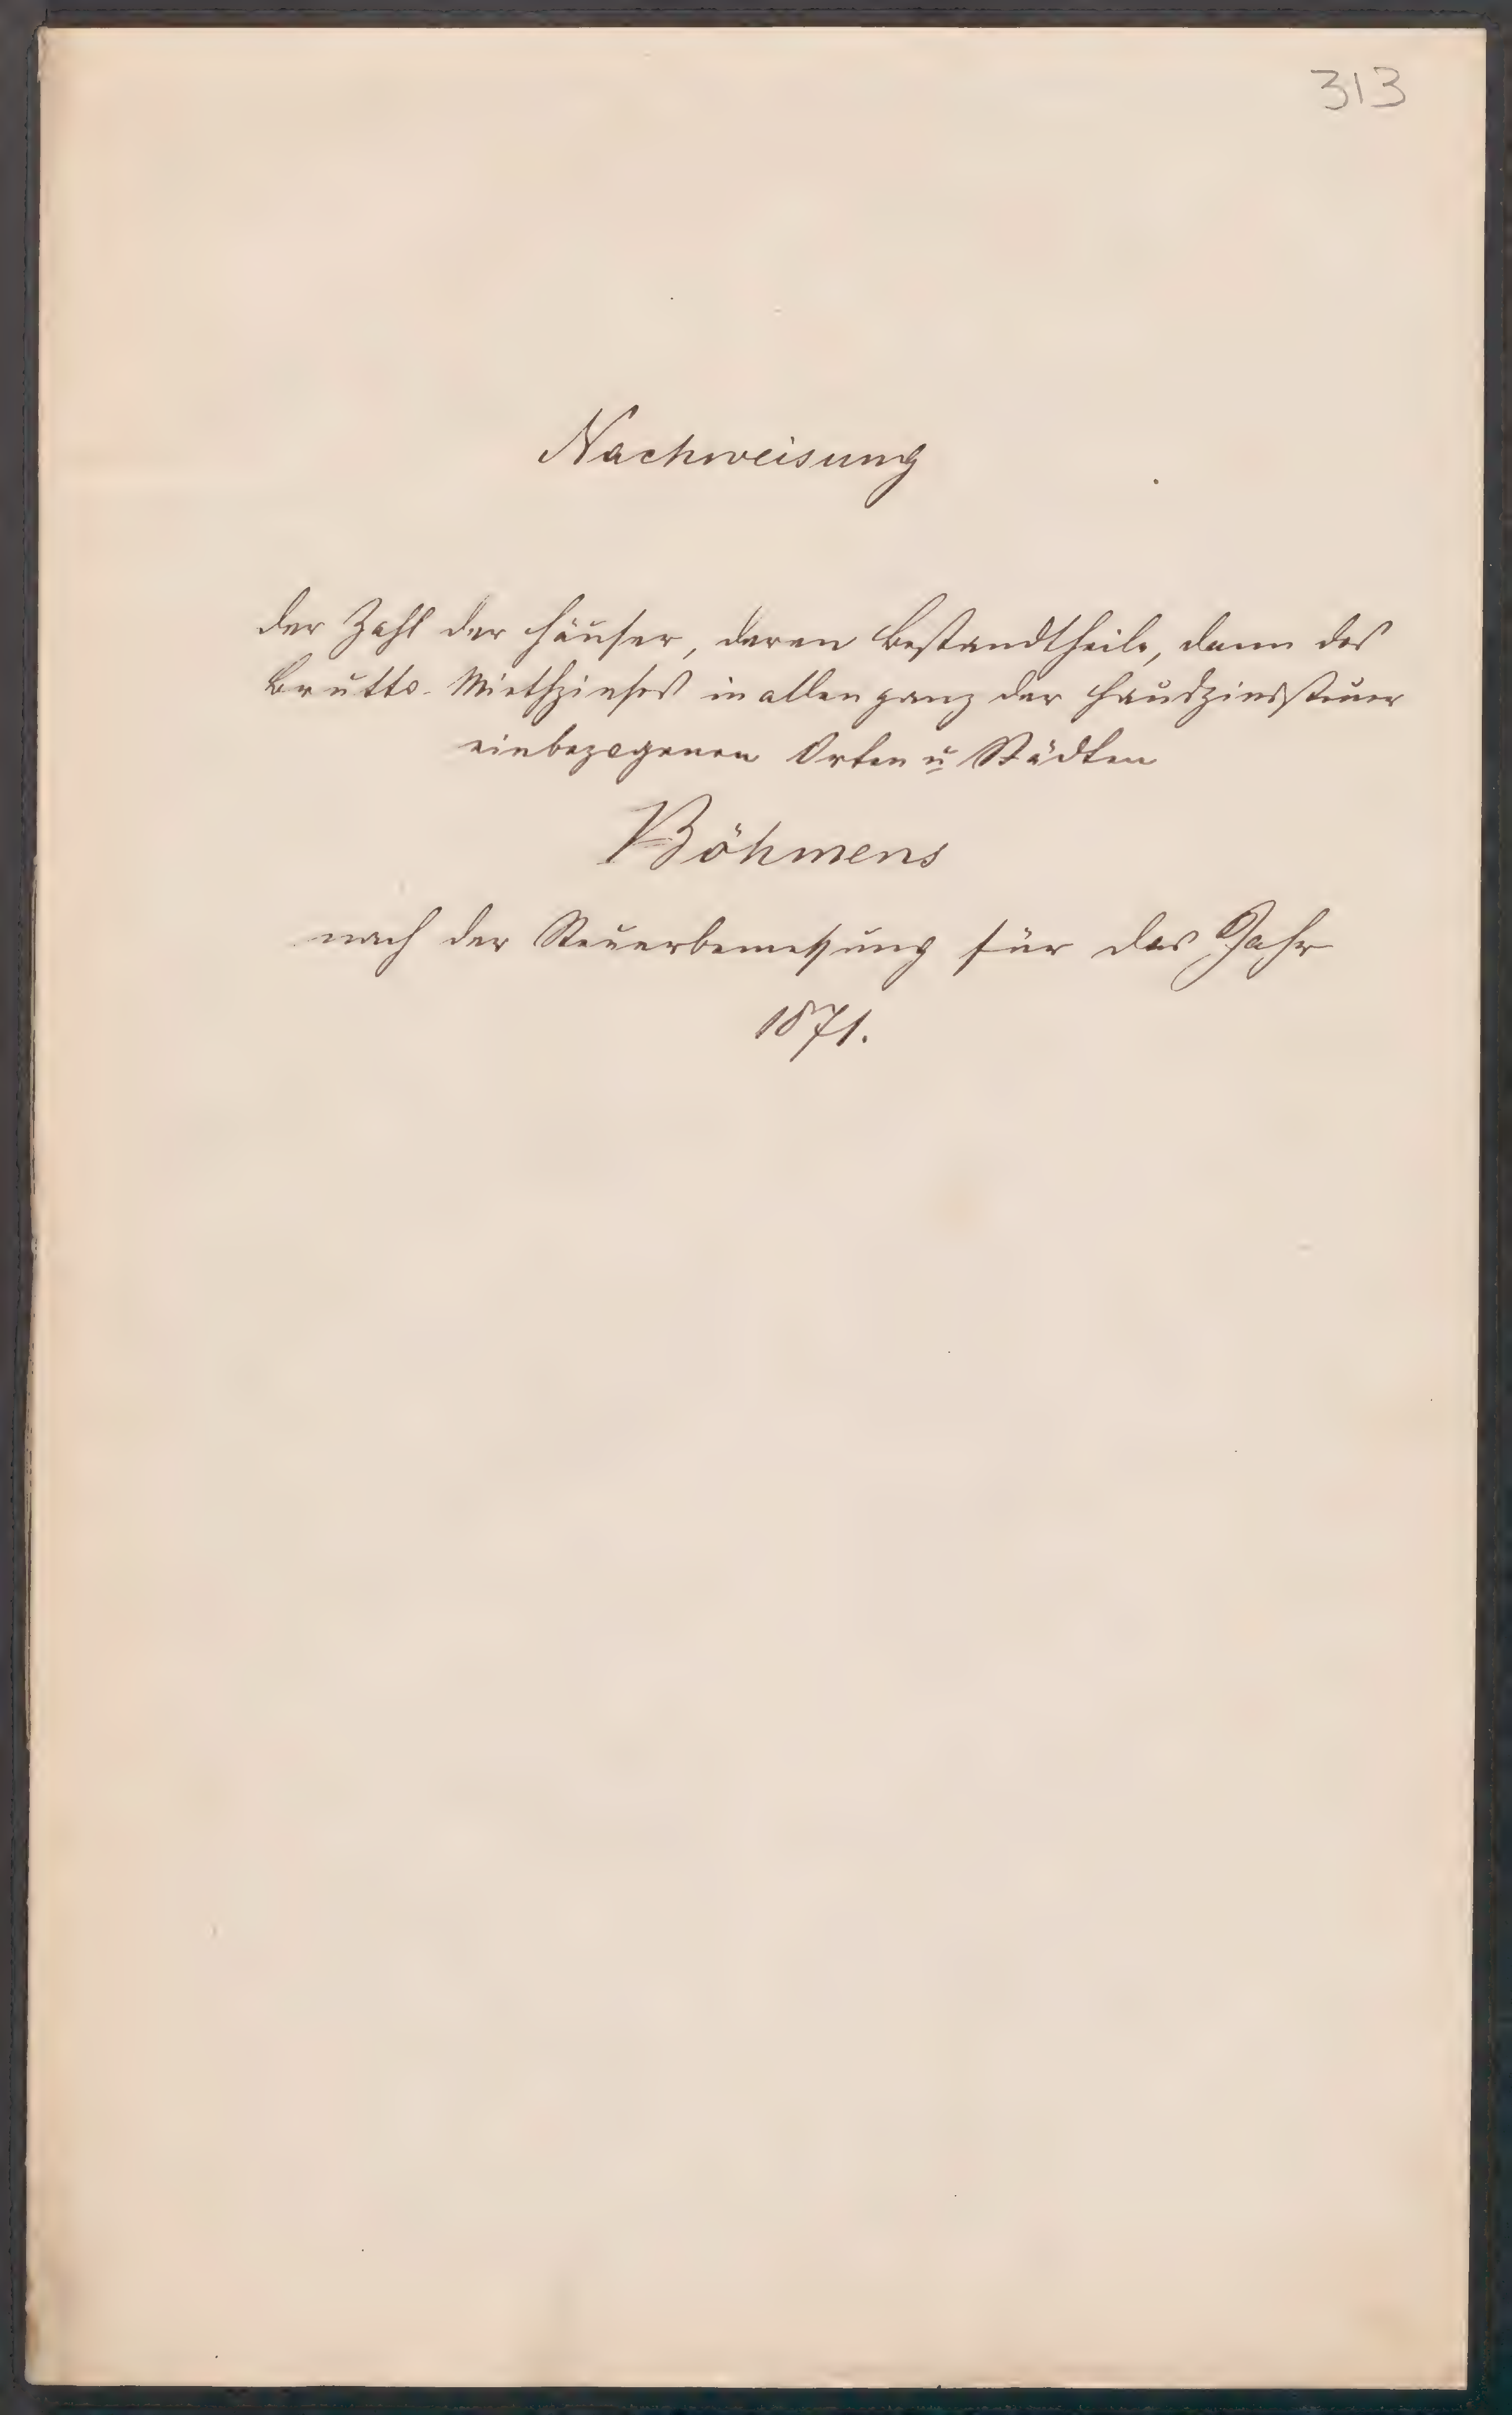 313
Nachweisung
der Zahl der Häuser, deren Bestandtheile, dann des
Brutto-Miethzinses in allen ganz der Hauszinssteuer
einbezogenen Orten u Städten
Böhmens
nach der Steuerbemessung für das Jahr
1871.